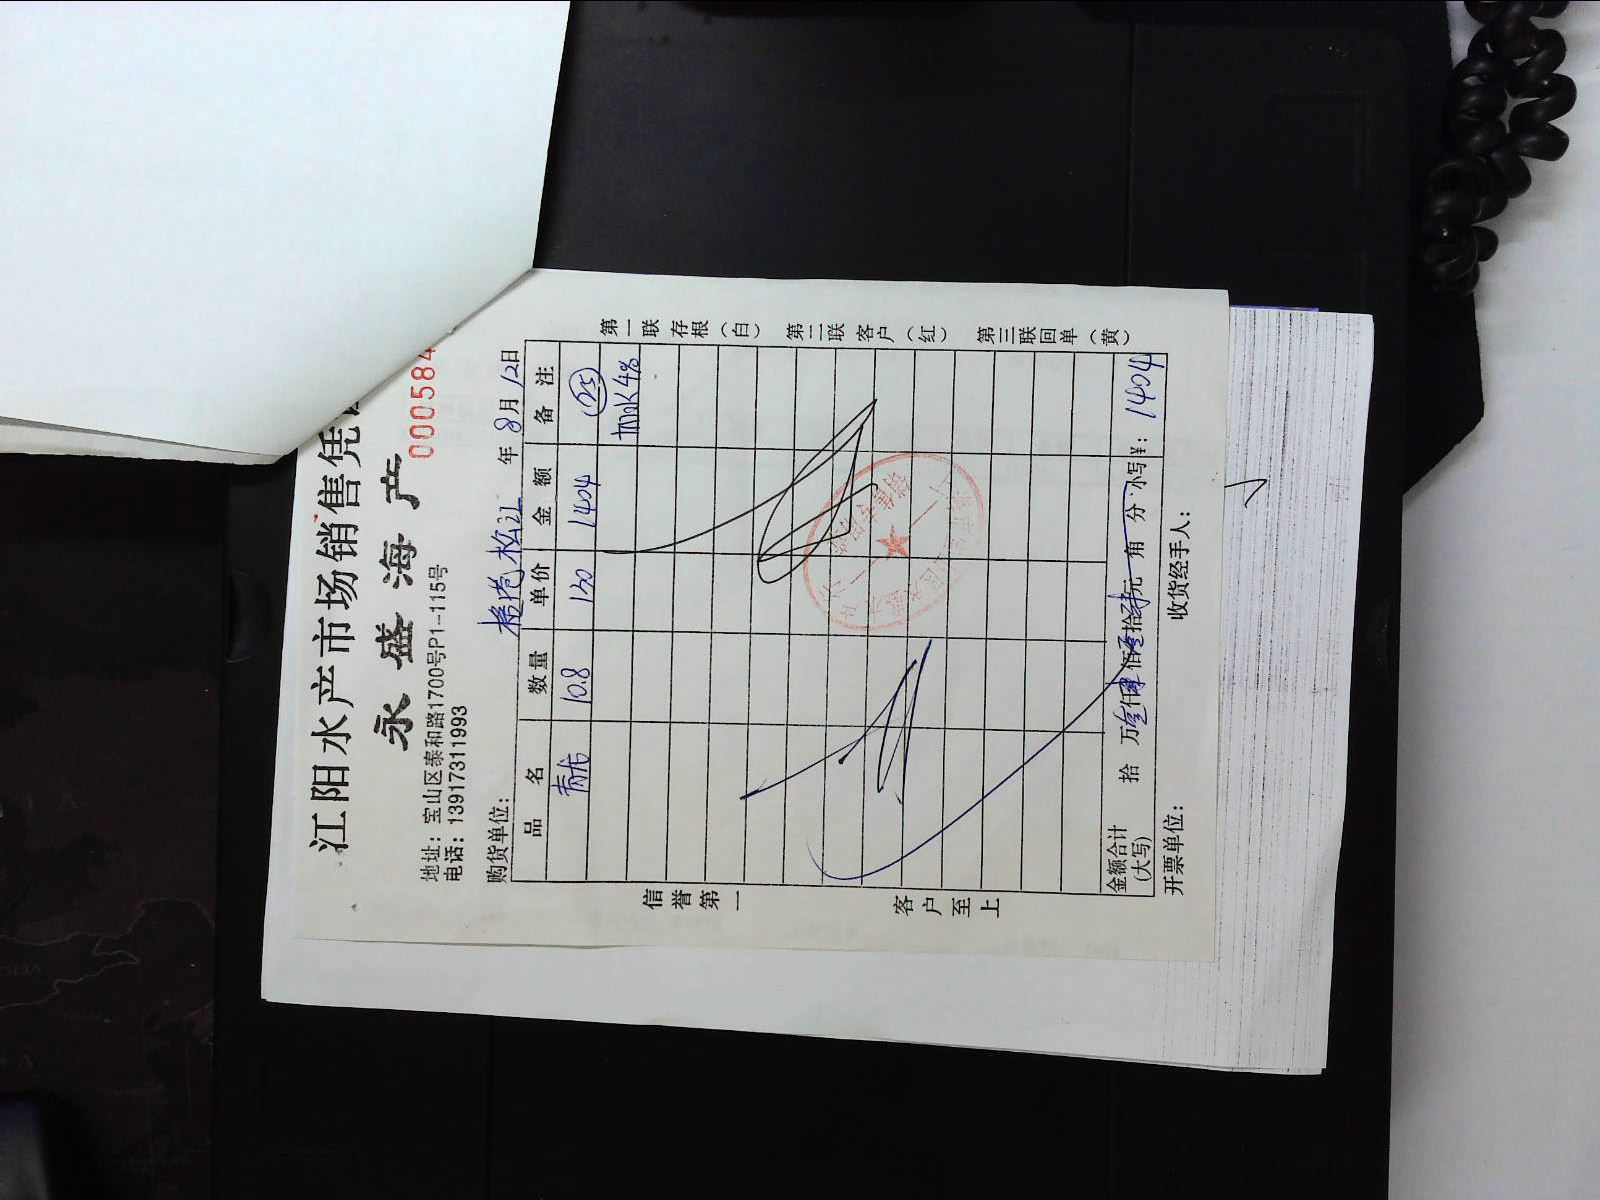 江阳水产市场销售凭
永盛海产
000584
地址：宝山区泰和路1700号P1-115号
电话：13917311993
购货单位： 松江 年8月12日
品名 数量 单价 金额 备注
10.8 130 1404 25
加水4%
金额合计
(大写) 拾 万壹仟肆佰零拾肆元 角 分 小写¥：1404
开票单位： 收货经手人：
信誉第一
客户至上
第一联存根（白）
第二联客户（红）
第三联回单（黄）